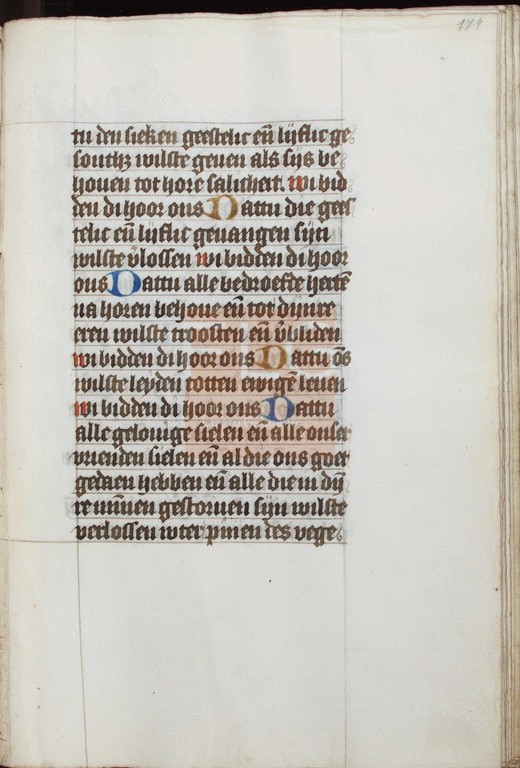 174
tu den sieken geestelic eñ lijflic ge
sontheit wilste geuen als sijs be
houen tot hore salicheit. wi bid
den di hoor ons Dattu die gees
telic eñ lijflic geuangen sijn
wilste v̄lossen wi bidden di hoor
ons Dattu alle bedroefte hertē
na horen behoue eñ tot dijnre
eren wilste troosten eñ v̄bliden
wi bidden di hoor ons Dattu ōs
wilste leyden totten ewigē leuen
wi bidden di hoor ons Dattu
alle gelouige sielen eñ alle onser
vrienden sielen eñ al die ons goet
gedaen hebben eñ alle die in dijn
re minnen gestoruen sijn wilste
verlossen wter pinen des vege